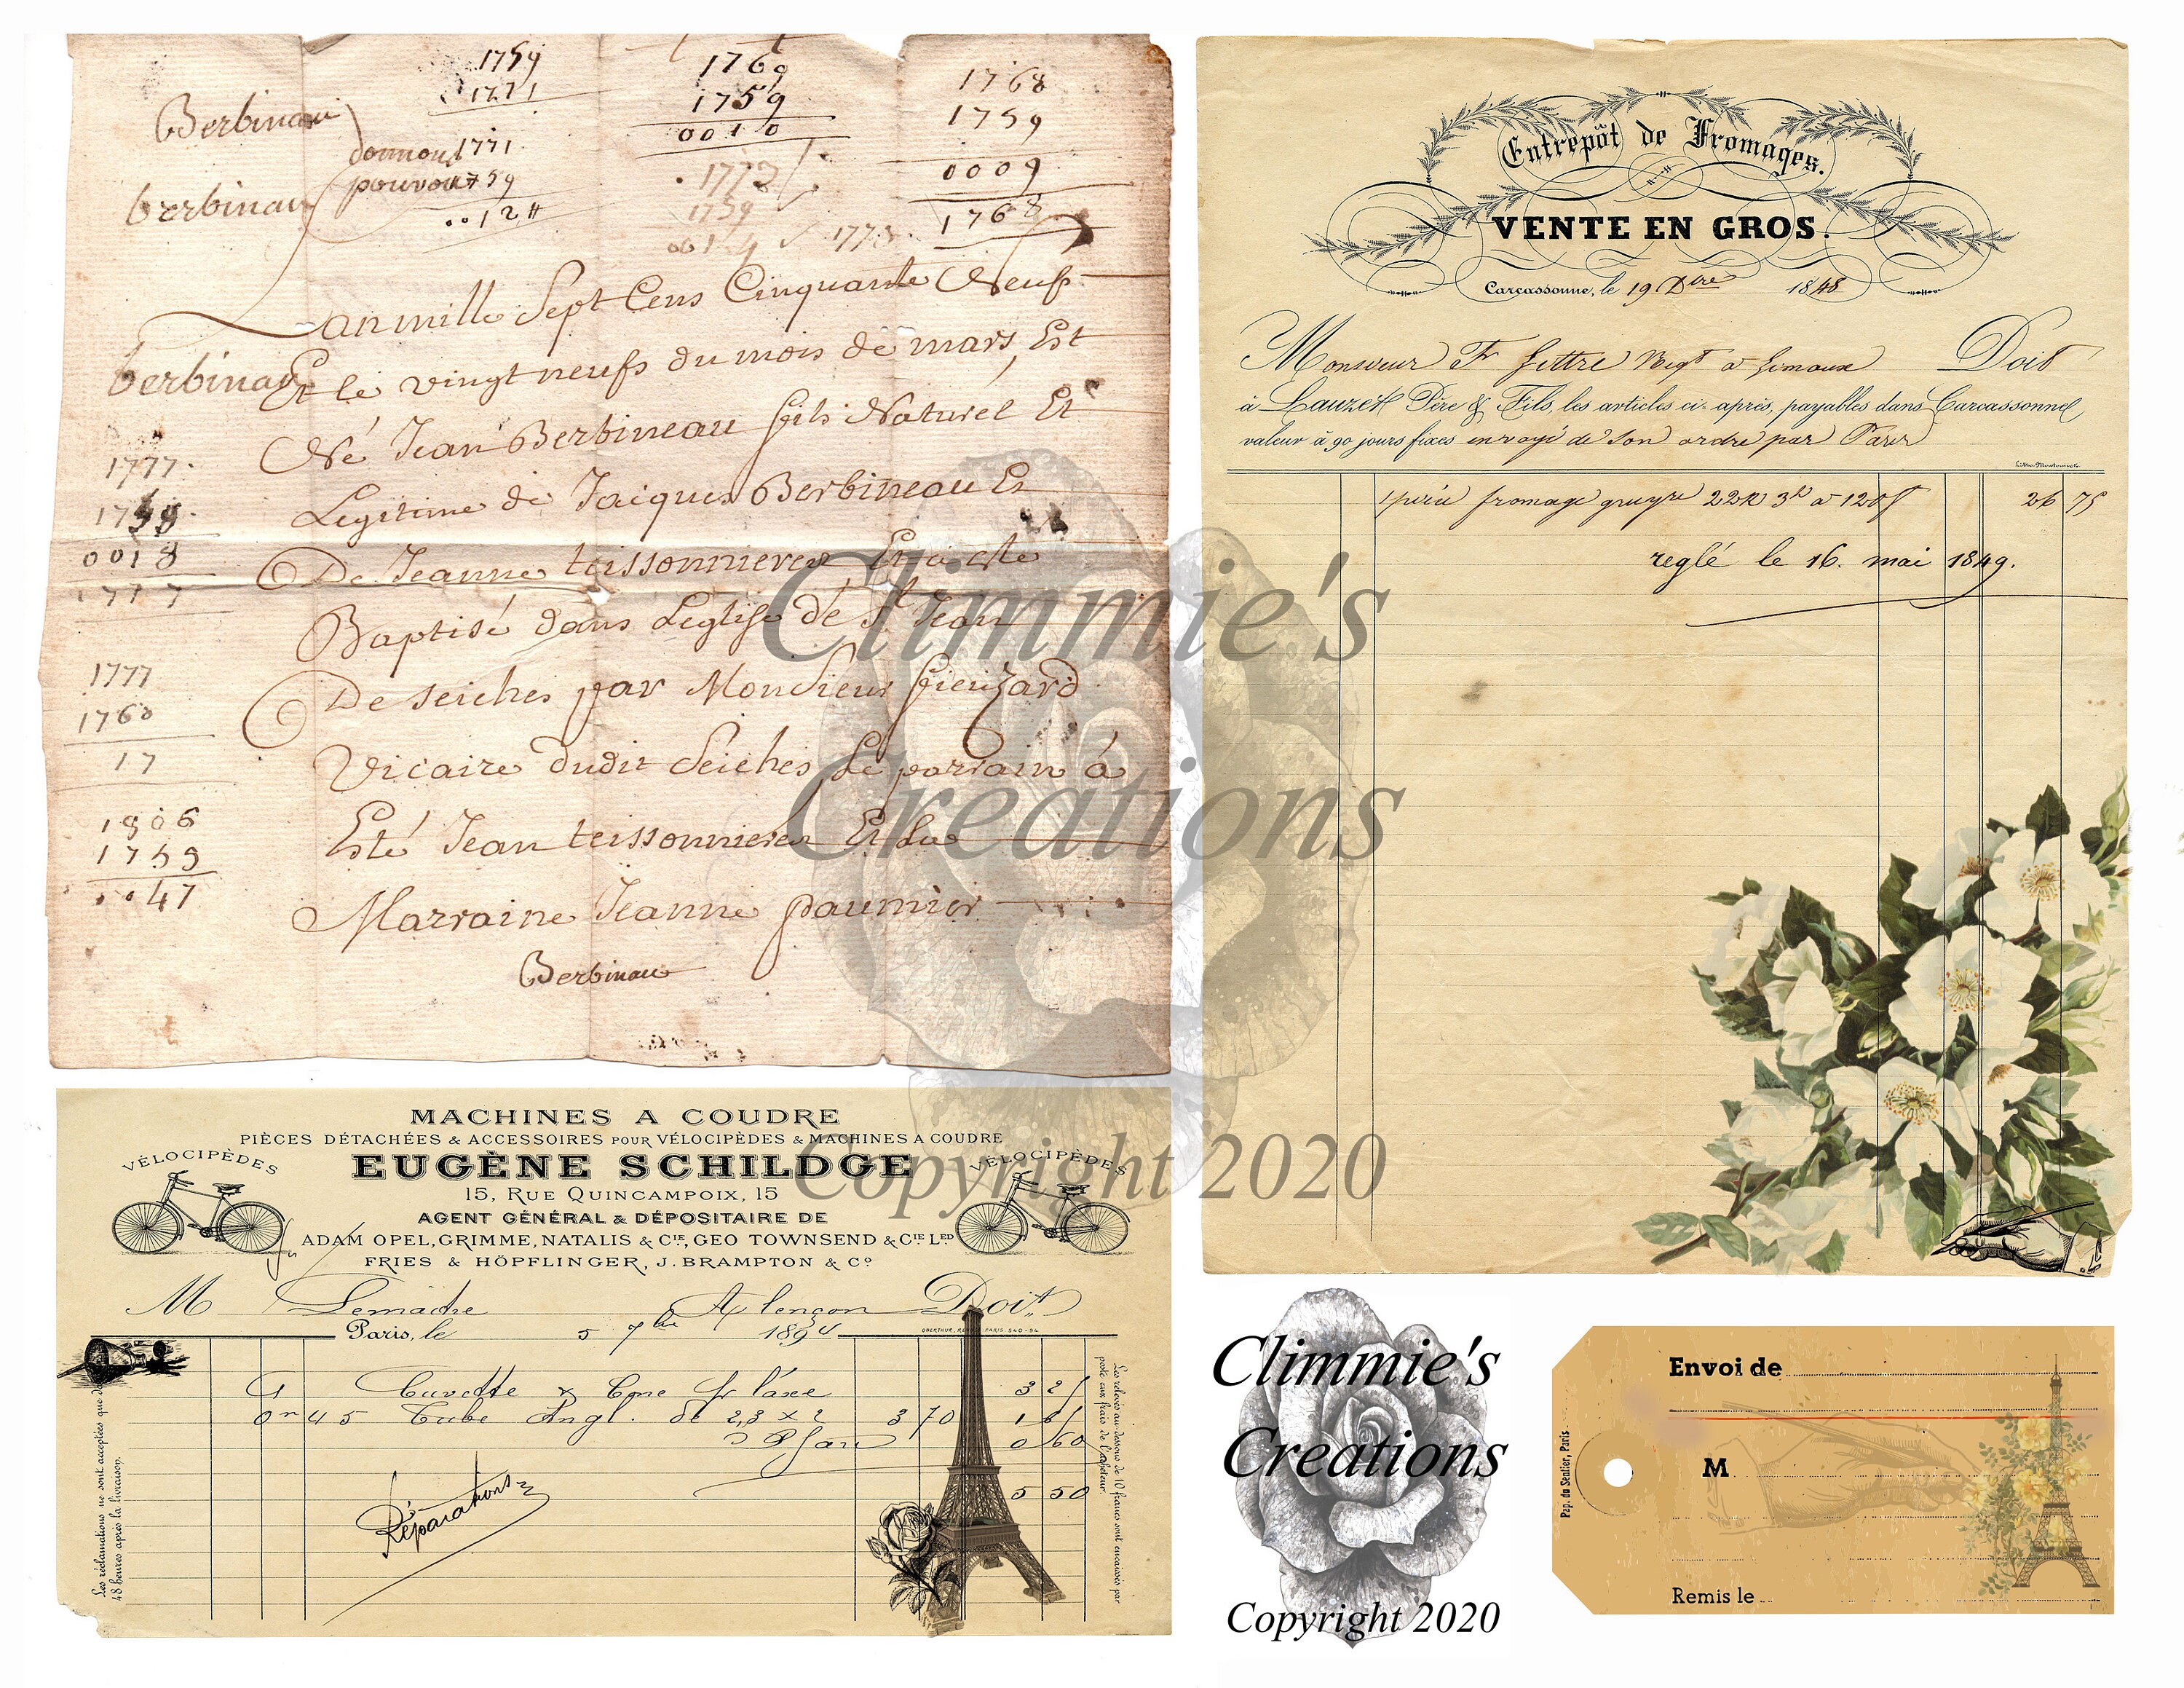 1759
1771
1771
1759
0012
1769
1759
0010
1773
1759
0014
1773
1768
1759
0009
1768
Berbinau
donnons
pouvoir
berbinau
Lan mille Sept Cens Cinquante Neuf
Et le vingt neufs du mois de mars Est
berbinau
Né Jean Berbineau fils Naturel Et
Legitime de Jaiques Berbineau Et
De Jeanne teissonnieres Et a este
Baptisé dans Leglise de St Jean
De seiches par Monsieur
Vicaire dudit Seiches Le parrain à
Esté Jean teissonnieres Et La
Marraine Jeanne paumier
Berbinau
1777
1759
0018
1777
1777
1760
17
1806
1759
47
Entrepôt de Fromages.
VENTE EN GROS.
Carcassonne, le 19 Dbre 1848
Monsieur Fr Negt a Limoux Doit
à Lauzet Père & Fils, les articles ci-après, payables dans Carcassonne
valeur à 90 jours fixes envoyé de son ordre par
1 pièce fromage gruyre 22k 3h a 120f 26 75
reglé le 16. mai 1849.
MACHINES A COUDRE
PIÈCES DÉTACHÉES & ACCESSOIRES POUR VÉLOCIPÈDES & MACHINES A COUDRE
VÉLOCIPÈDES
EUGÈNE SCHILDGE
VÉLOCIPÈDES
15, RUE QUINCAMPOIX, 15
AGENT GÉNÉRAL & DÉPOSITAIRE DE
ADAM OPEL, GRIMME, NATALIS & CIE, GEO TOWNSEND & CIE LED
FRIES & HÖPFLINGER, J. BRAMPTON & Co
M Lemache Alençon Doit
Paris, le 5 7bre 1894
OBERTHUR, RENNES-PARIS. 540-94
1 Cuvette & Cone pr l'axe 3 25
0m 45 Tube Angl. de 2,3 x 2 3 70 1 65
0 60
5 50
Réparations
Les réclamations ne sont acceptées que dans
48 heures après la livraison.
Les relevés au-dessous de 10 francs sont encaissés par
poste aux frais de l'acheteur.
Climmie's
Creations
Copyright 2020
Climmie's
Creations
Copyright 2020
Envoi de
M
Remis le
Pap. du Sentier, Paris